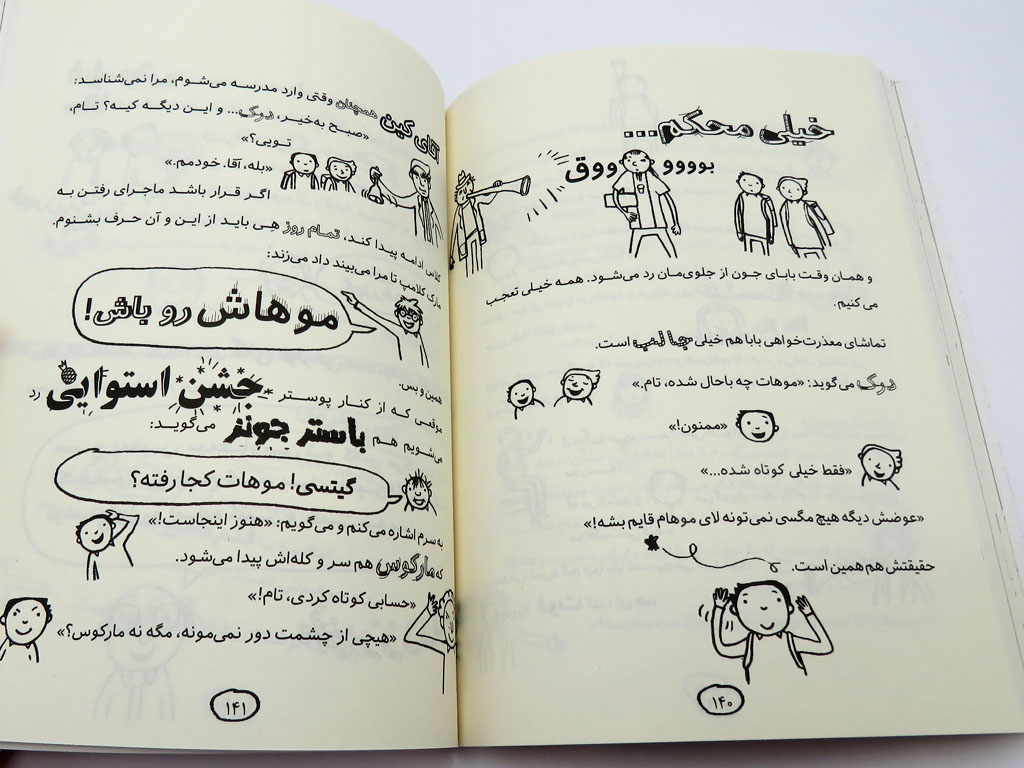 خیلی محکم...
بوووووووق
و همان وقت بابای جون از جلوی‌مان رد می‌شود. همه خیلی تعجب
می‌کنیم.
تماشای معذرت‌خواهی بابا هم خیلی جالب است.
درک می‌گوید: «موهات چه باحال شده، تام.»
«ممنون!»
«فقط خیلی کوتاه شده...»
«عوضش دیگه هیچ مگسی نمی‌تونه لای موهام قایم بشه!»
حقیقتش هم همین است.
۱۴۰
آقای کین همچنان وقتی وارد مدرسه می‌شوم، مرا نمی‌شناسد:
«صبح به‌خیر، درک... و این دیگه کیه؟ تام،
تویی؟»
«بله، آقا. خودمم.»
اگر قرار باشد ماجرای رفتن به
کلاس ادامه پیدا کند، تمام روز هی باید از این و آن حرف بشنوم.
مارک کلامپ تا مرا می‌بیند داد می‌زند:
موهاش رو باش!
همین و بس.
موقعی که از کنار پوستر جشن استوایی رد
می‌شویم هم باستر جونز می‌گوید:
گیتسی! موهات کجا رفته؟
به سرم اشاره می‌کنم و می‌گویم: «هنوز اینجاست!»
که مارکوس هم سر و کله‌اش پیدا می‌شود.
«حسابی کوتاه کردی، تام!»
«هیچی از چشمت دور نمی‌مونه، مگه نه مارکوس؟»
۱۴۱